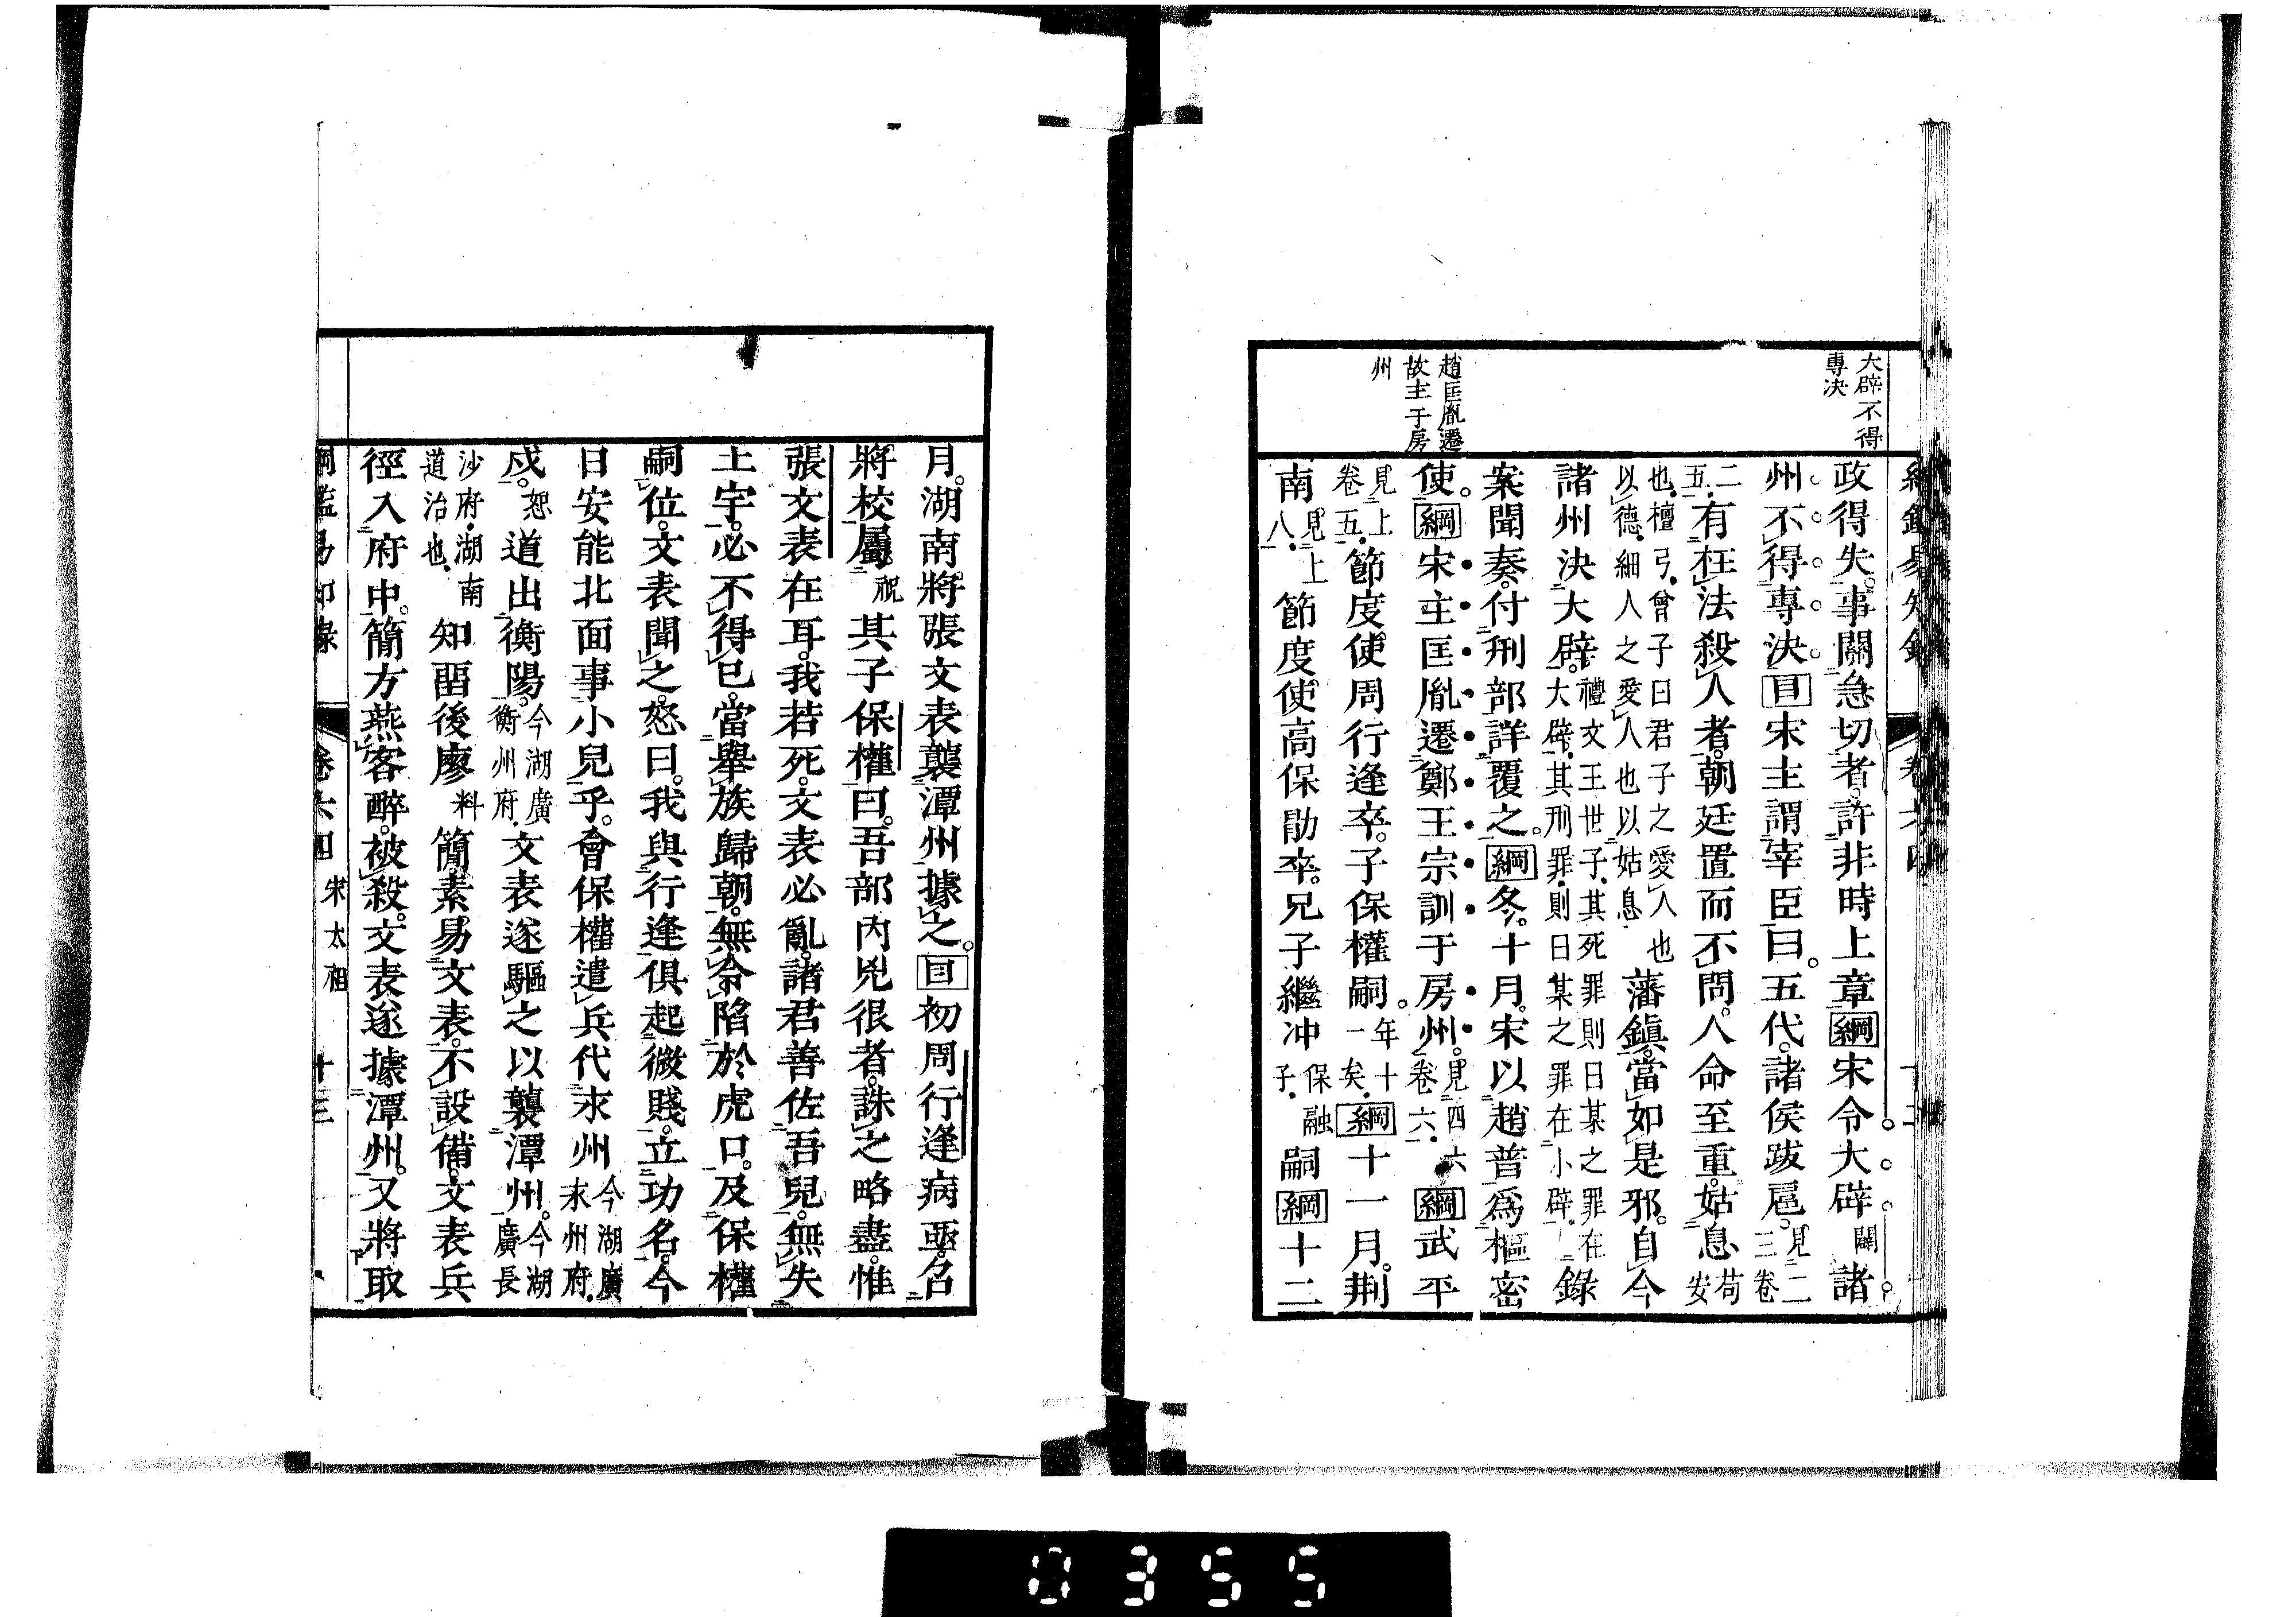 大辟不得
專决
趙匡胤遷
故主于房
州
政得失。事關急切者。許非時上章綱宋令大辟闢諸
州不得專決目宋主謂宰臣曰。五代諸侯跋扈。見二三卷
二五。有枉法殺人者。朝廷置而不問。人命至重。姑息苟安
也。檀弓。曾子曰君子之愛人也以德。細人之愛人也以姑息藩鎮。當如是邪。自今
諸州決大辟。禮文王世子。其死罪則曰某之罪在大辟。其刑罪。則曰某之罪在小辟。錄
案聞奏。付刑部詳覆之。綱冬。十月。宋以趙普爲樞密
使。綱宋主匡胤遷鄭王宗訓于房州。見四六卷六。綱武平
見上卷五。節度使周行逢卒。子保權嗣。年十一矣。綱十一月。荆
南見上八。節度使高保勗卒。兄子繼冲保融子。嗣綱十二
月。湖南將張文表襲潭州據之。目初周行逢病亟。召
將校。屬祝其子保權曰。吾部內兇很者。誅之略盡。惟
張文表在耳。我若死。文表必亂。諸君善佐吾兒。無失
土宇。必不得已。當舉族歸朝。無令陷於虎口。及保權
嗣位。文表聞之。怒曰。我與行逢俱起微賤。立功名。今
日安能北面事小兒乎。會保權遣兵代永州今湖廣永州府。
戍。恕道出衡陽。今湖廣衡州府。文表遂驅之以襲潭州。今湖廣長
沙府。湖南道治也。知畱後廖料簡。素易文表。不設備。文表兵
徑入府中。簡方燕客醉。被殺。文表遂據潭州。又將取
綱鑑易知錄 卷六四 宋太祖 十三